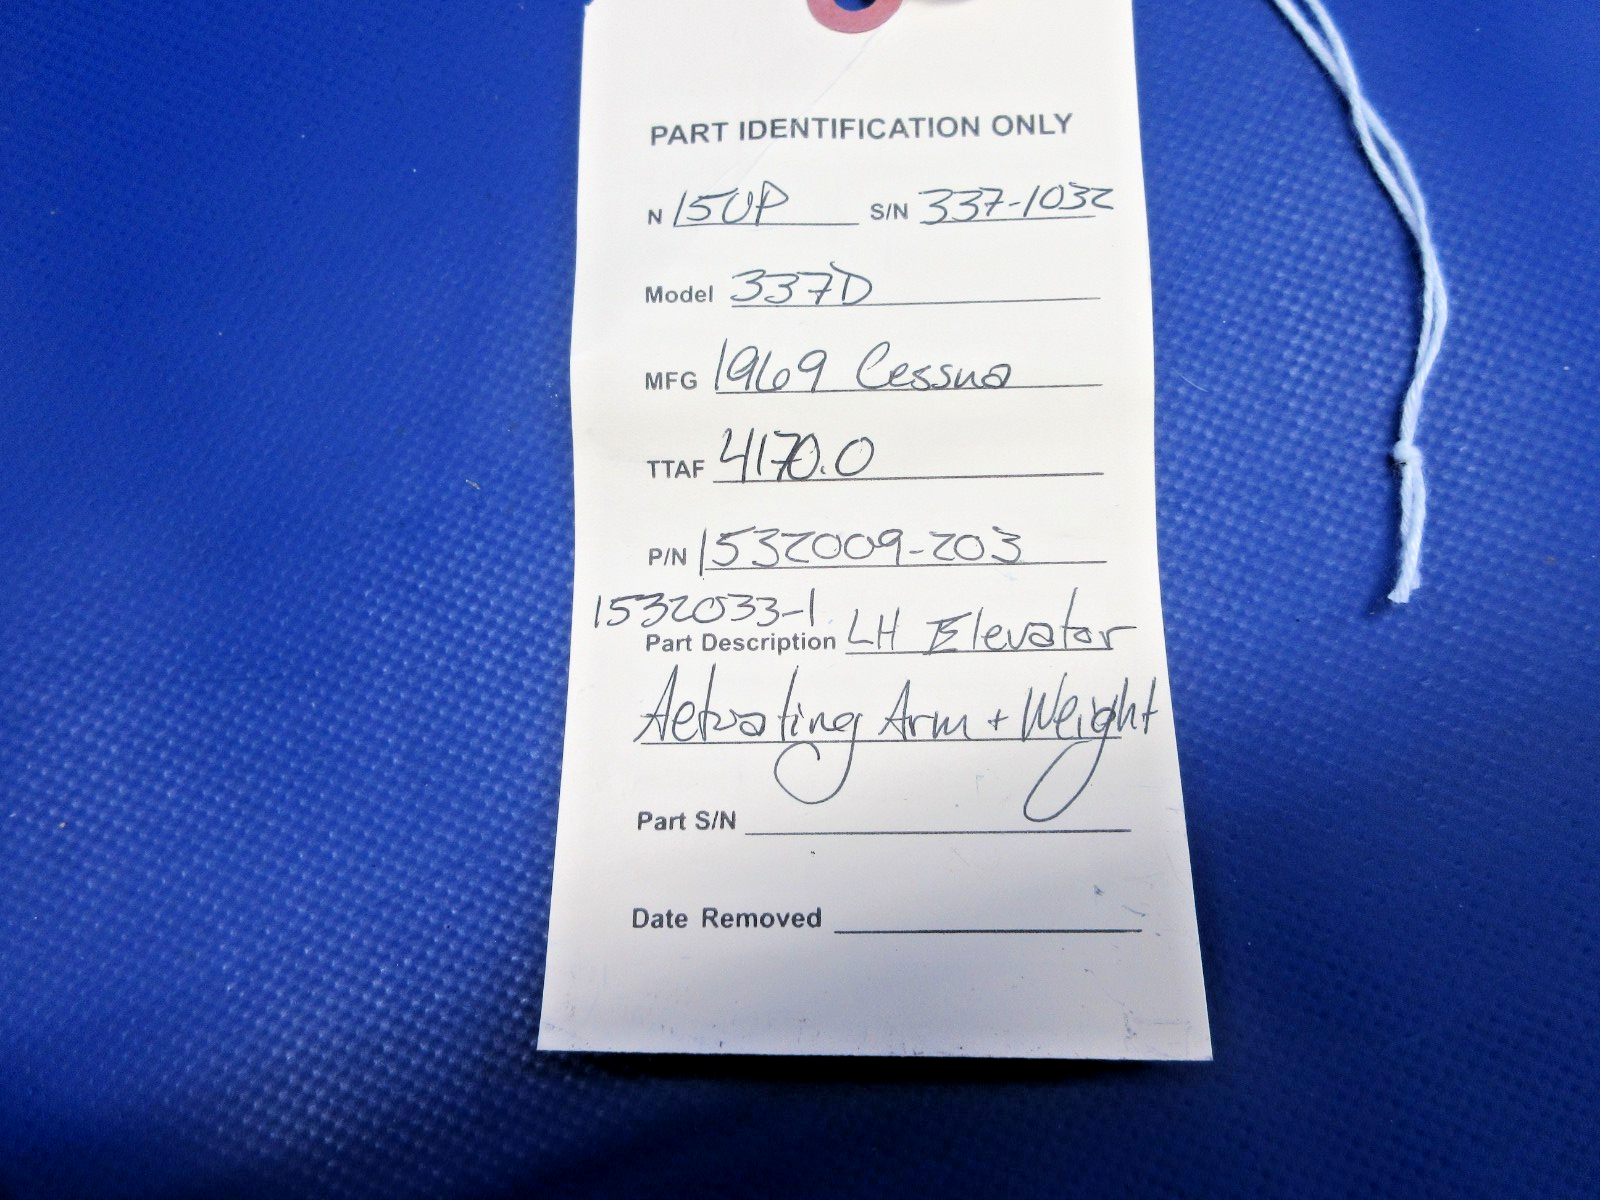 PART IDENTIFICATION ONLY
N 15UP S/N 337-1032
Model 337D
MFG 1969 Cessna
TTAF 4170.0
P/N 1532009-203
1532033-1
Part Description LH Elevator
Actuating Arm + Weight
Part S/N
Date Removed